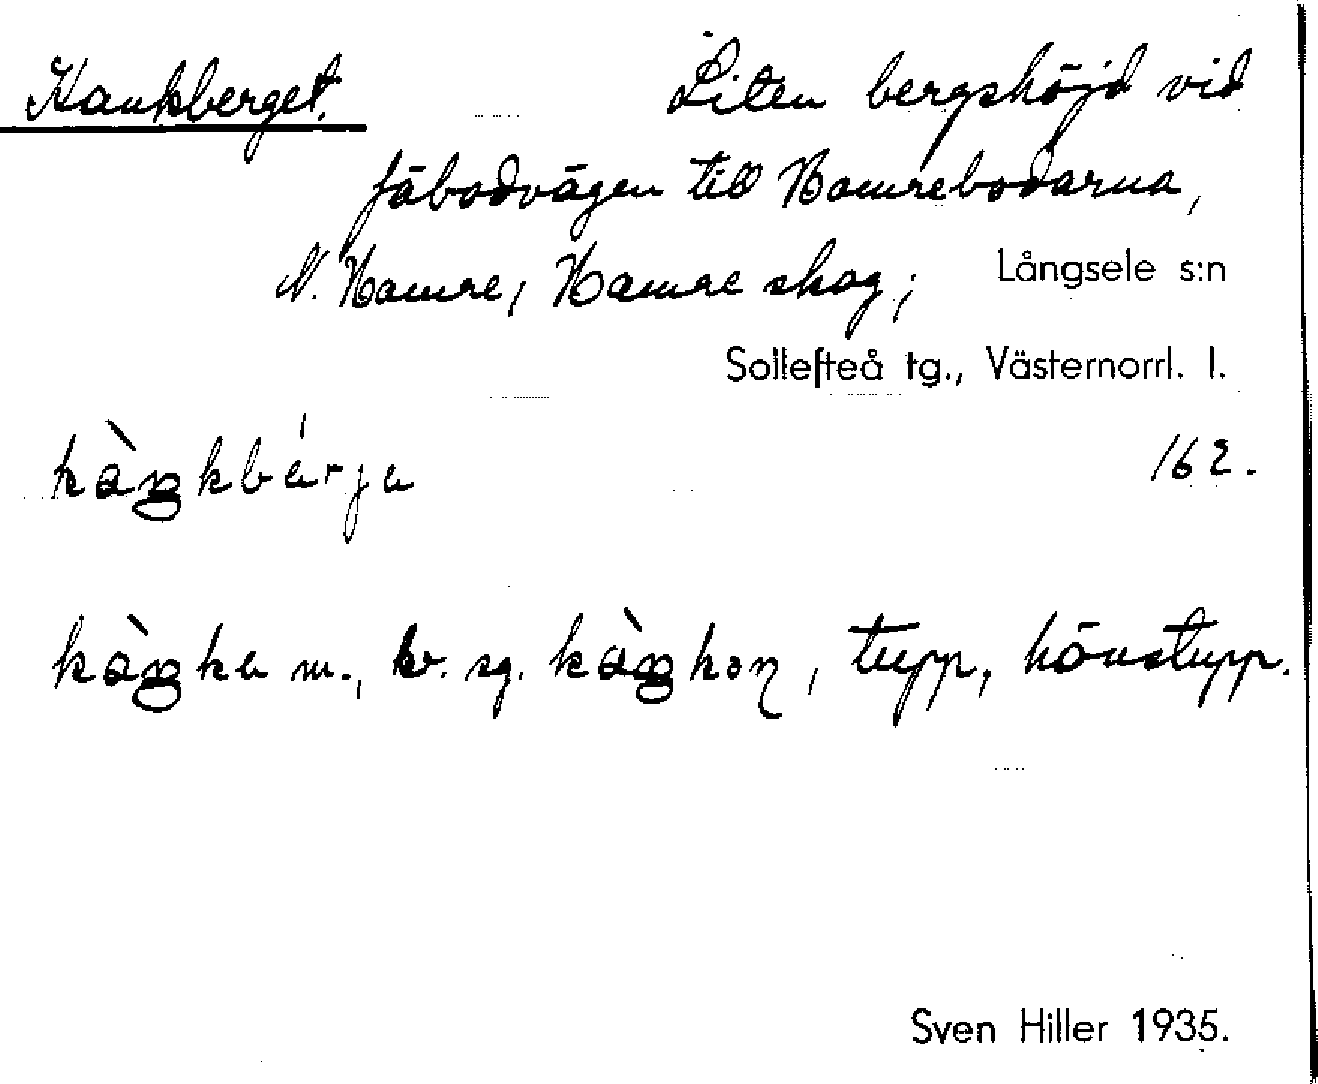 Kankberget. Liten bergshöjd vid
fäbodvägen till Hamrebodarna,
N. Hamre, Hamre skog; Långsele s:n
Sollefteå tg., Västernorrl. l.
kàŋkbárja 162.
kàŋka m., bv. sg. kàŋkən, tupp, hönstupp.
Sven Hiller 1935.